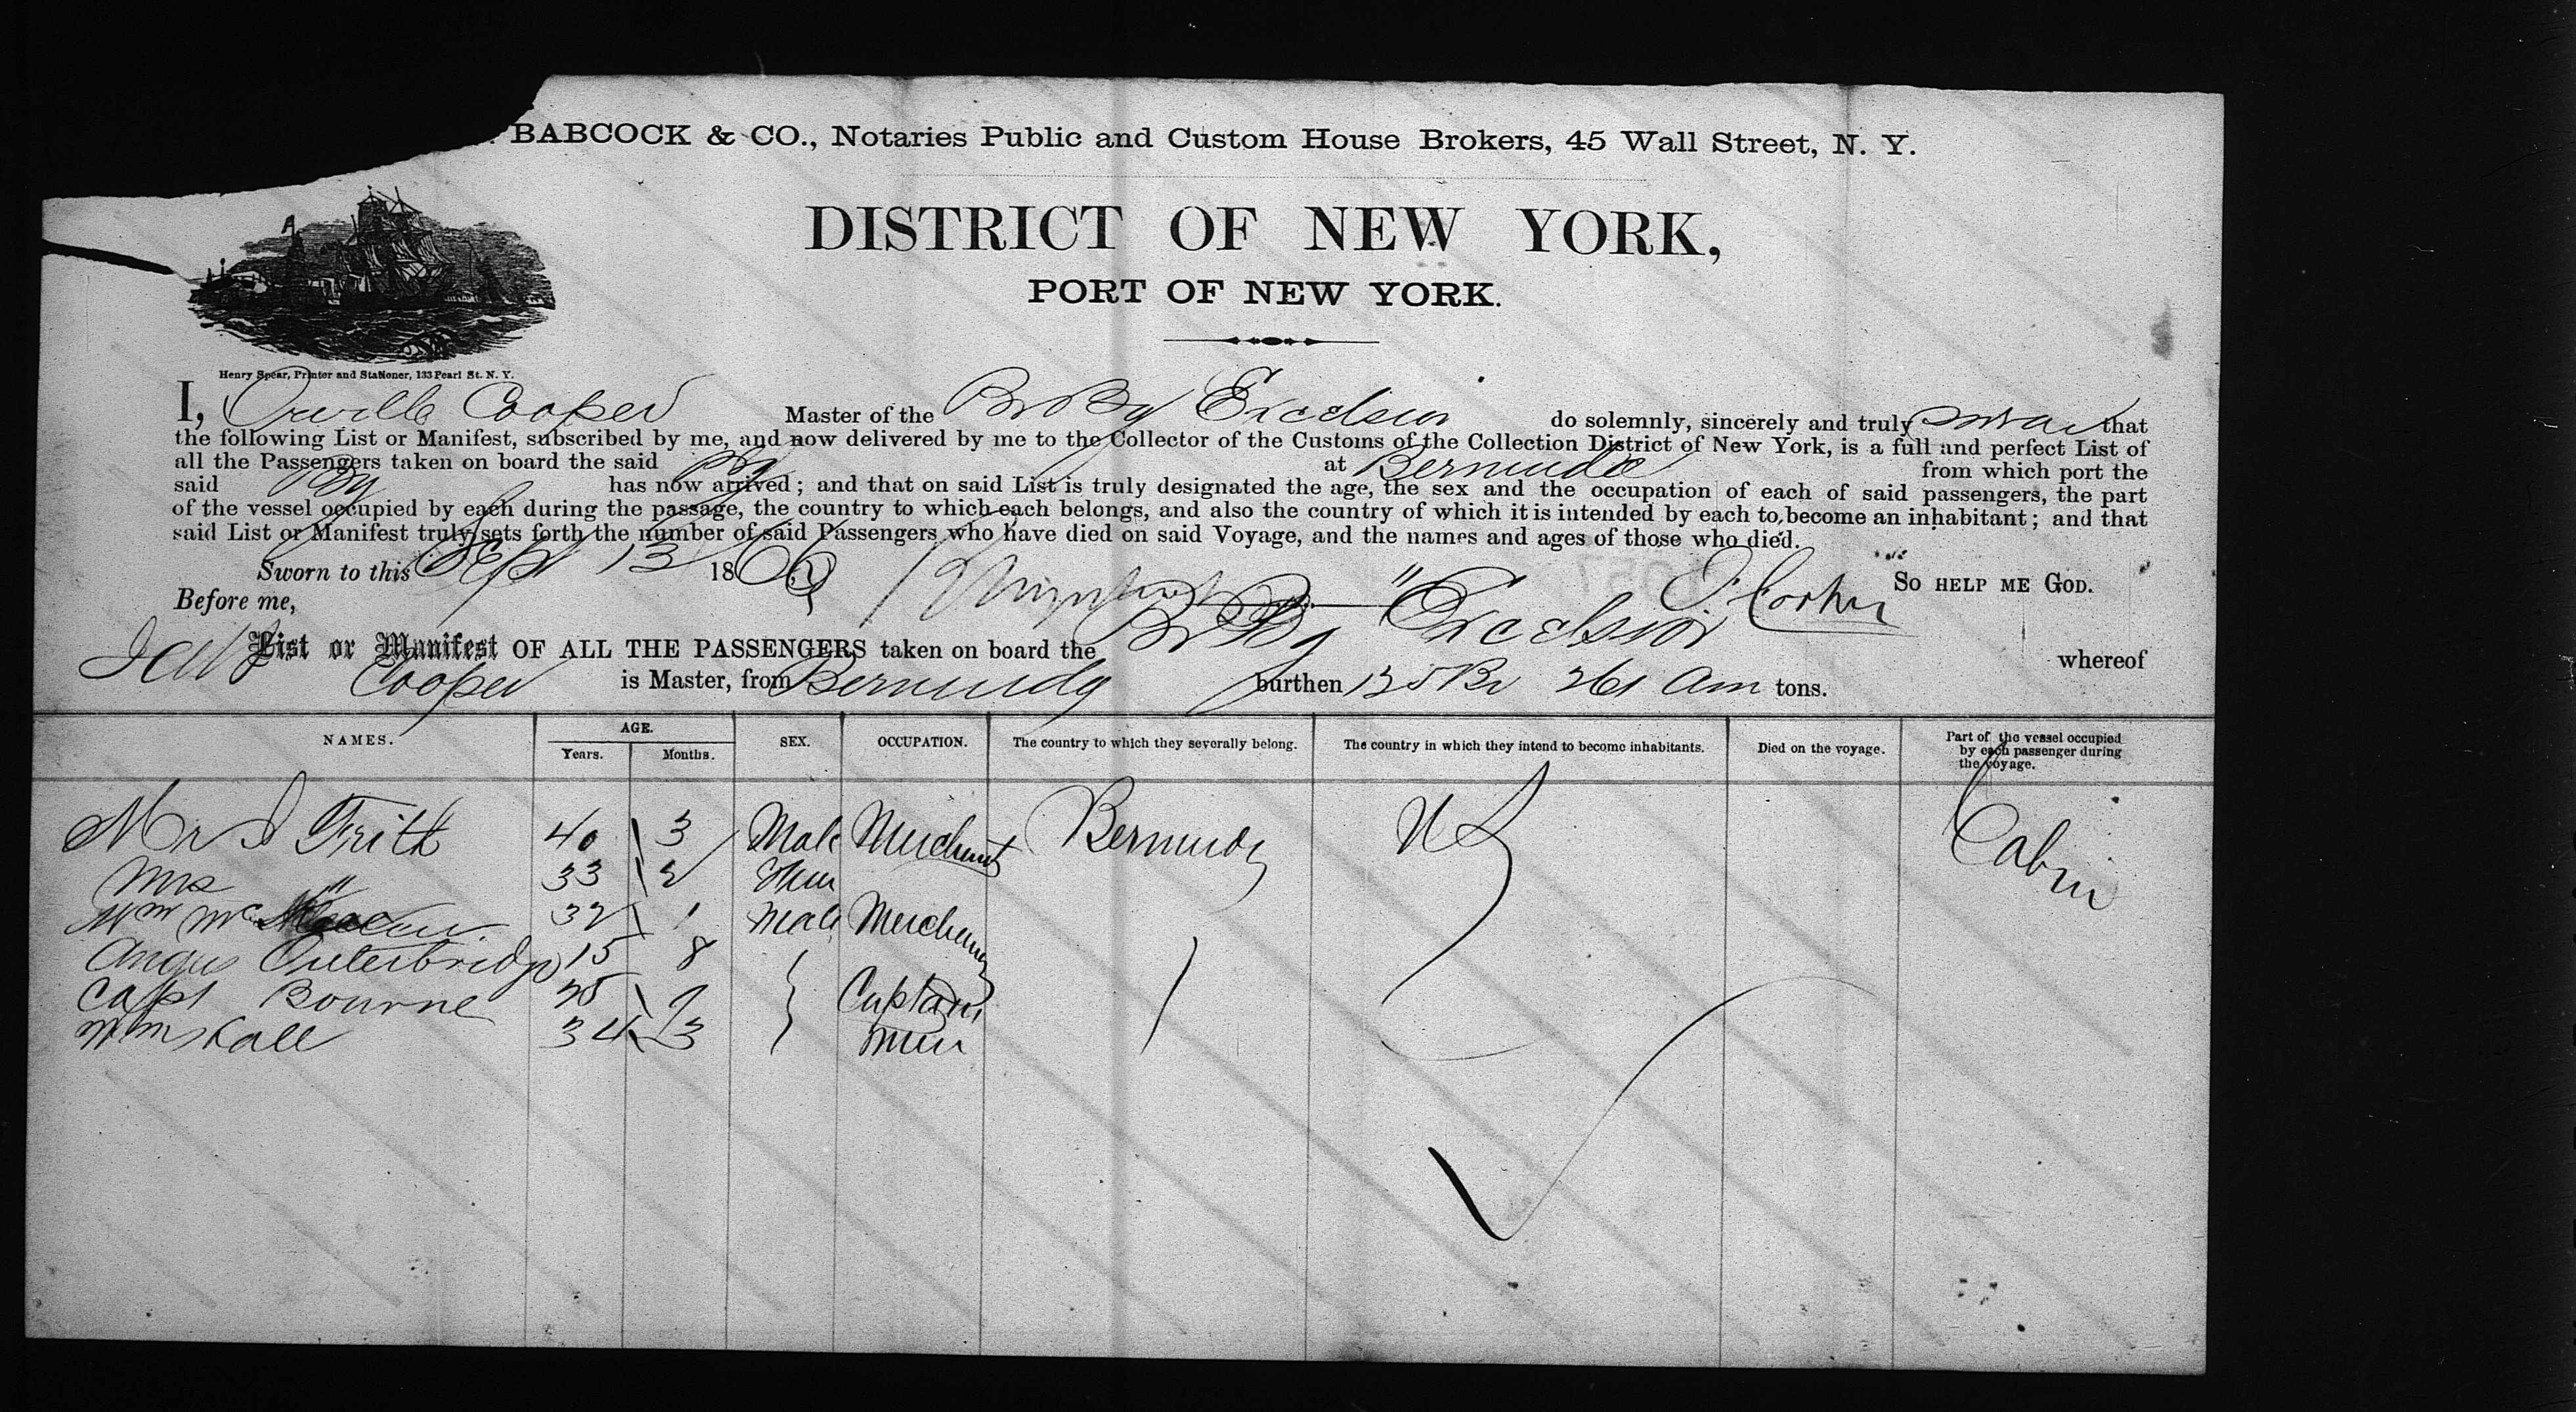 BABCOCK & CO., Notaries Public and Custom House Brokers, 45 Wall Street, N. Y.
DISTRICT OF NEW YORK,
PORT OF NEW YORK.
Henry Spear, Printer and Stationer, 133 Pearl St. N. Y.
I, Orville Cooper Master of the Br Bg Excelsior do solemnly, sincerely and truly swear that
the following List or Manifest, subscribed by me, and now delivered by me to the Collector of the Customs of the Collection District of New York, is a full and perfect List of
all the Passengers taken on board the said Bg at Bermuda from which port the
said Bg has now arrived; and that on said List is truly designated the age, the sex and the occupation of each of said passengers, the part
of the vessel occupied by each during the passage, the country to which each belongs, and also the country of which it is intended by each to become an inhabitant; and that
said List or Manifest truly sets forth the number of said Passengers who have died on said Voyage, and the names and ages of those who died.
Sworn to this Sept 13 186 O Cooper So HELP ME GOD.
Before me,
List or Manifest OF ALL THE PASSENGERS taken on board the Br Bg "Excelsior whereof
Cooper is Master, from Bermuda burthen Br 261 Am tons.
NAMES. AGE. SEX. OCCUPATION. The country to which they severally belong. The country in which they intend to become inhabitants. Died on the voyage. Part of the vessel occupied by each passenger during the voyage.
Years. Months.
Mr Frith 40 3 Male Merchant Bermuda US Cabin
Mrs " 33 2
Wm Mc 32 1 Male Merchant
Angus Outerbridge 15 8
Capt Bourne 9 Captain
Wm Hall 34 3